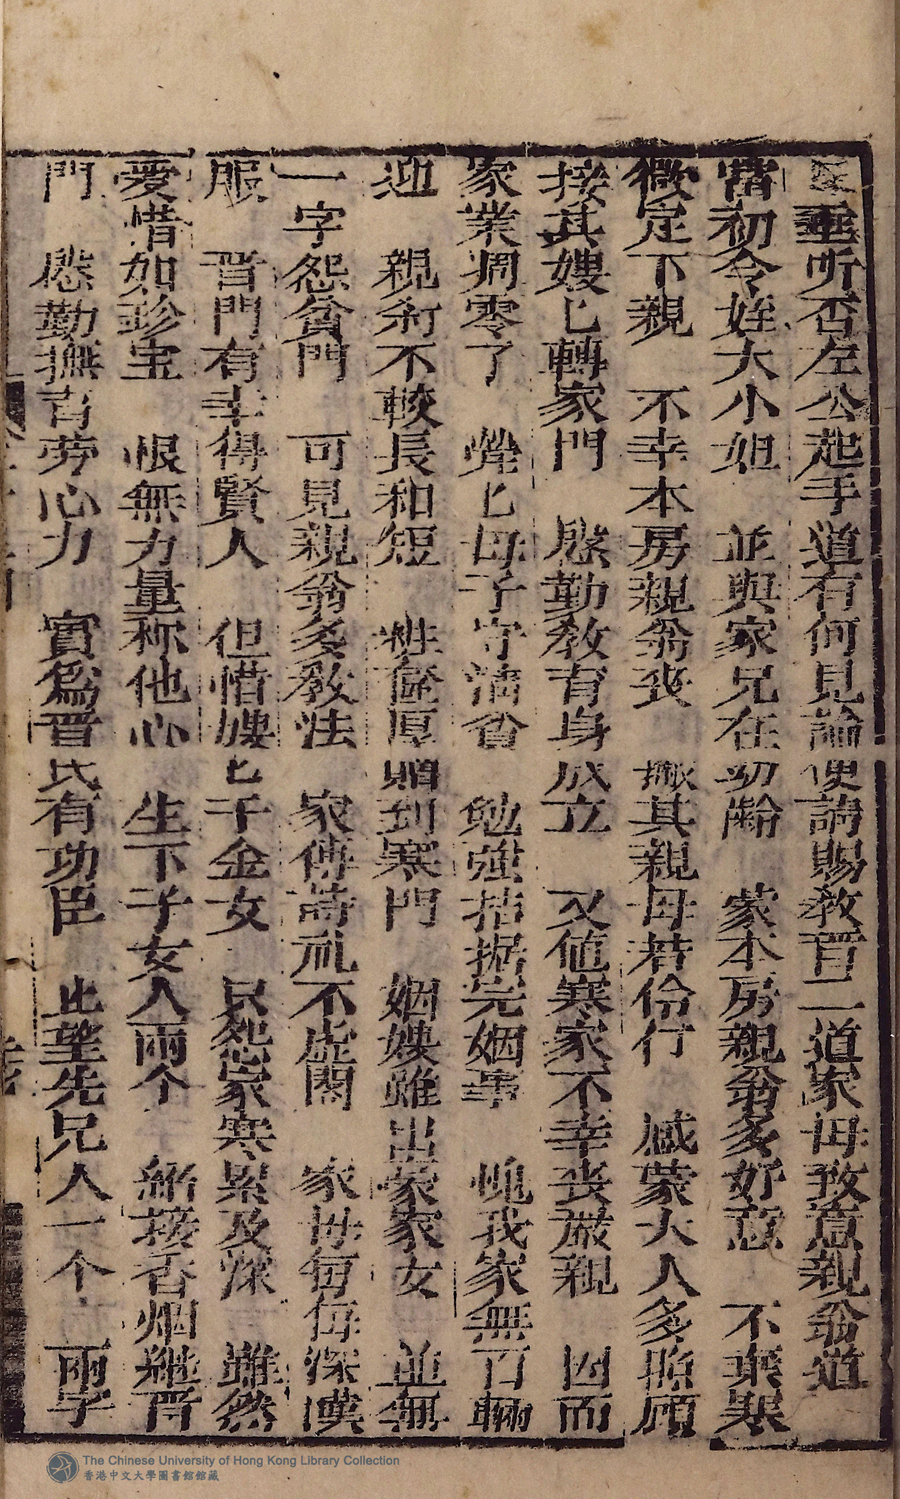 垂听否左公起手道有何見論便請賜教晋二道家母致意親翁道
當初令姪大小姐　並與家兄在幼齡　蒙本房親翁多好意　不棄寒
微定下親　不幸本房親翁丧　撇其親母若伶仃　感蒙大人多照顧
接其嫂匕轉家門　慇勤教育身成立　又値寒家不幸丧嚴親　因而
家業凋零了　煢匕母子守清貧　勉强拮据完姻事　愧我家無百輛
迎　親翁不較長和短　粧奩厚贈到寒門　姻娛雖出豪家女　並無
一字怨貧門　可見親翁多敎法　家傳詩礼不虚閑　家母毎毎深漢
服　晋門有幸得賢人　但惜嫂匕千金女　只怨家寒累及深　雖然
愛惜如珍宝　恨無力量称他心　生下子女人兩个　紹接香烟継晋
門　慇勤撫育劳心力　實爲晋氏有功臣　止望先兄人一个　兩子
The Chinese University of Hong Kong Library Collection
香港中文大學圖書館館藏